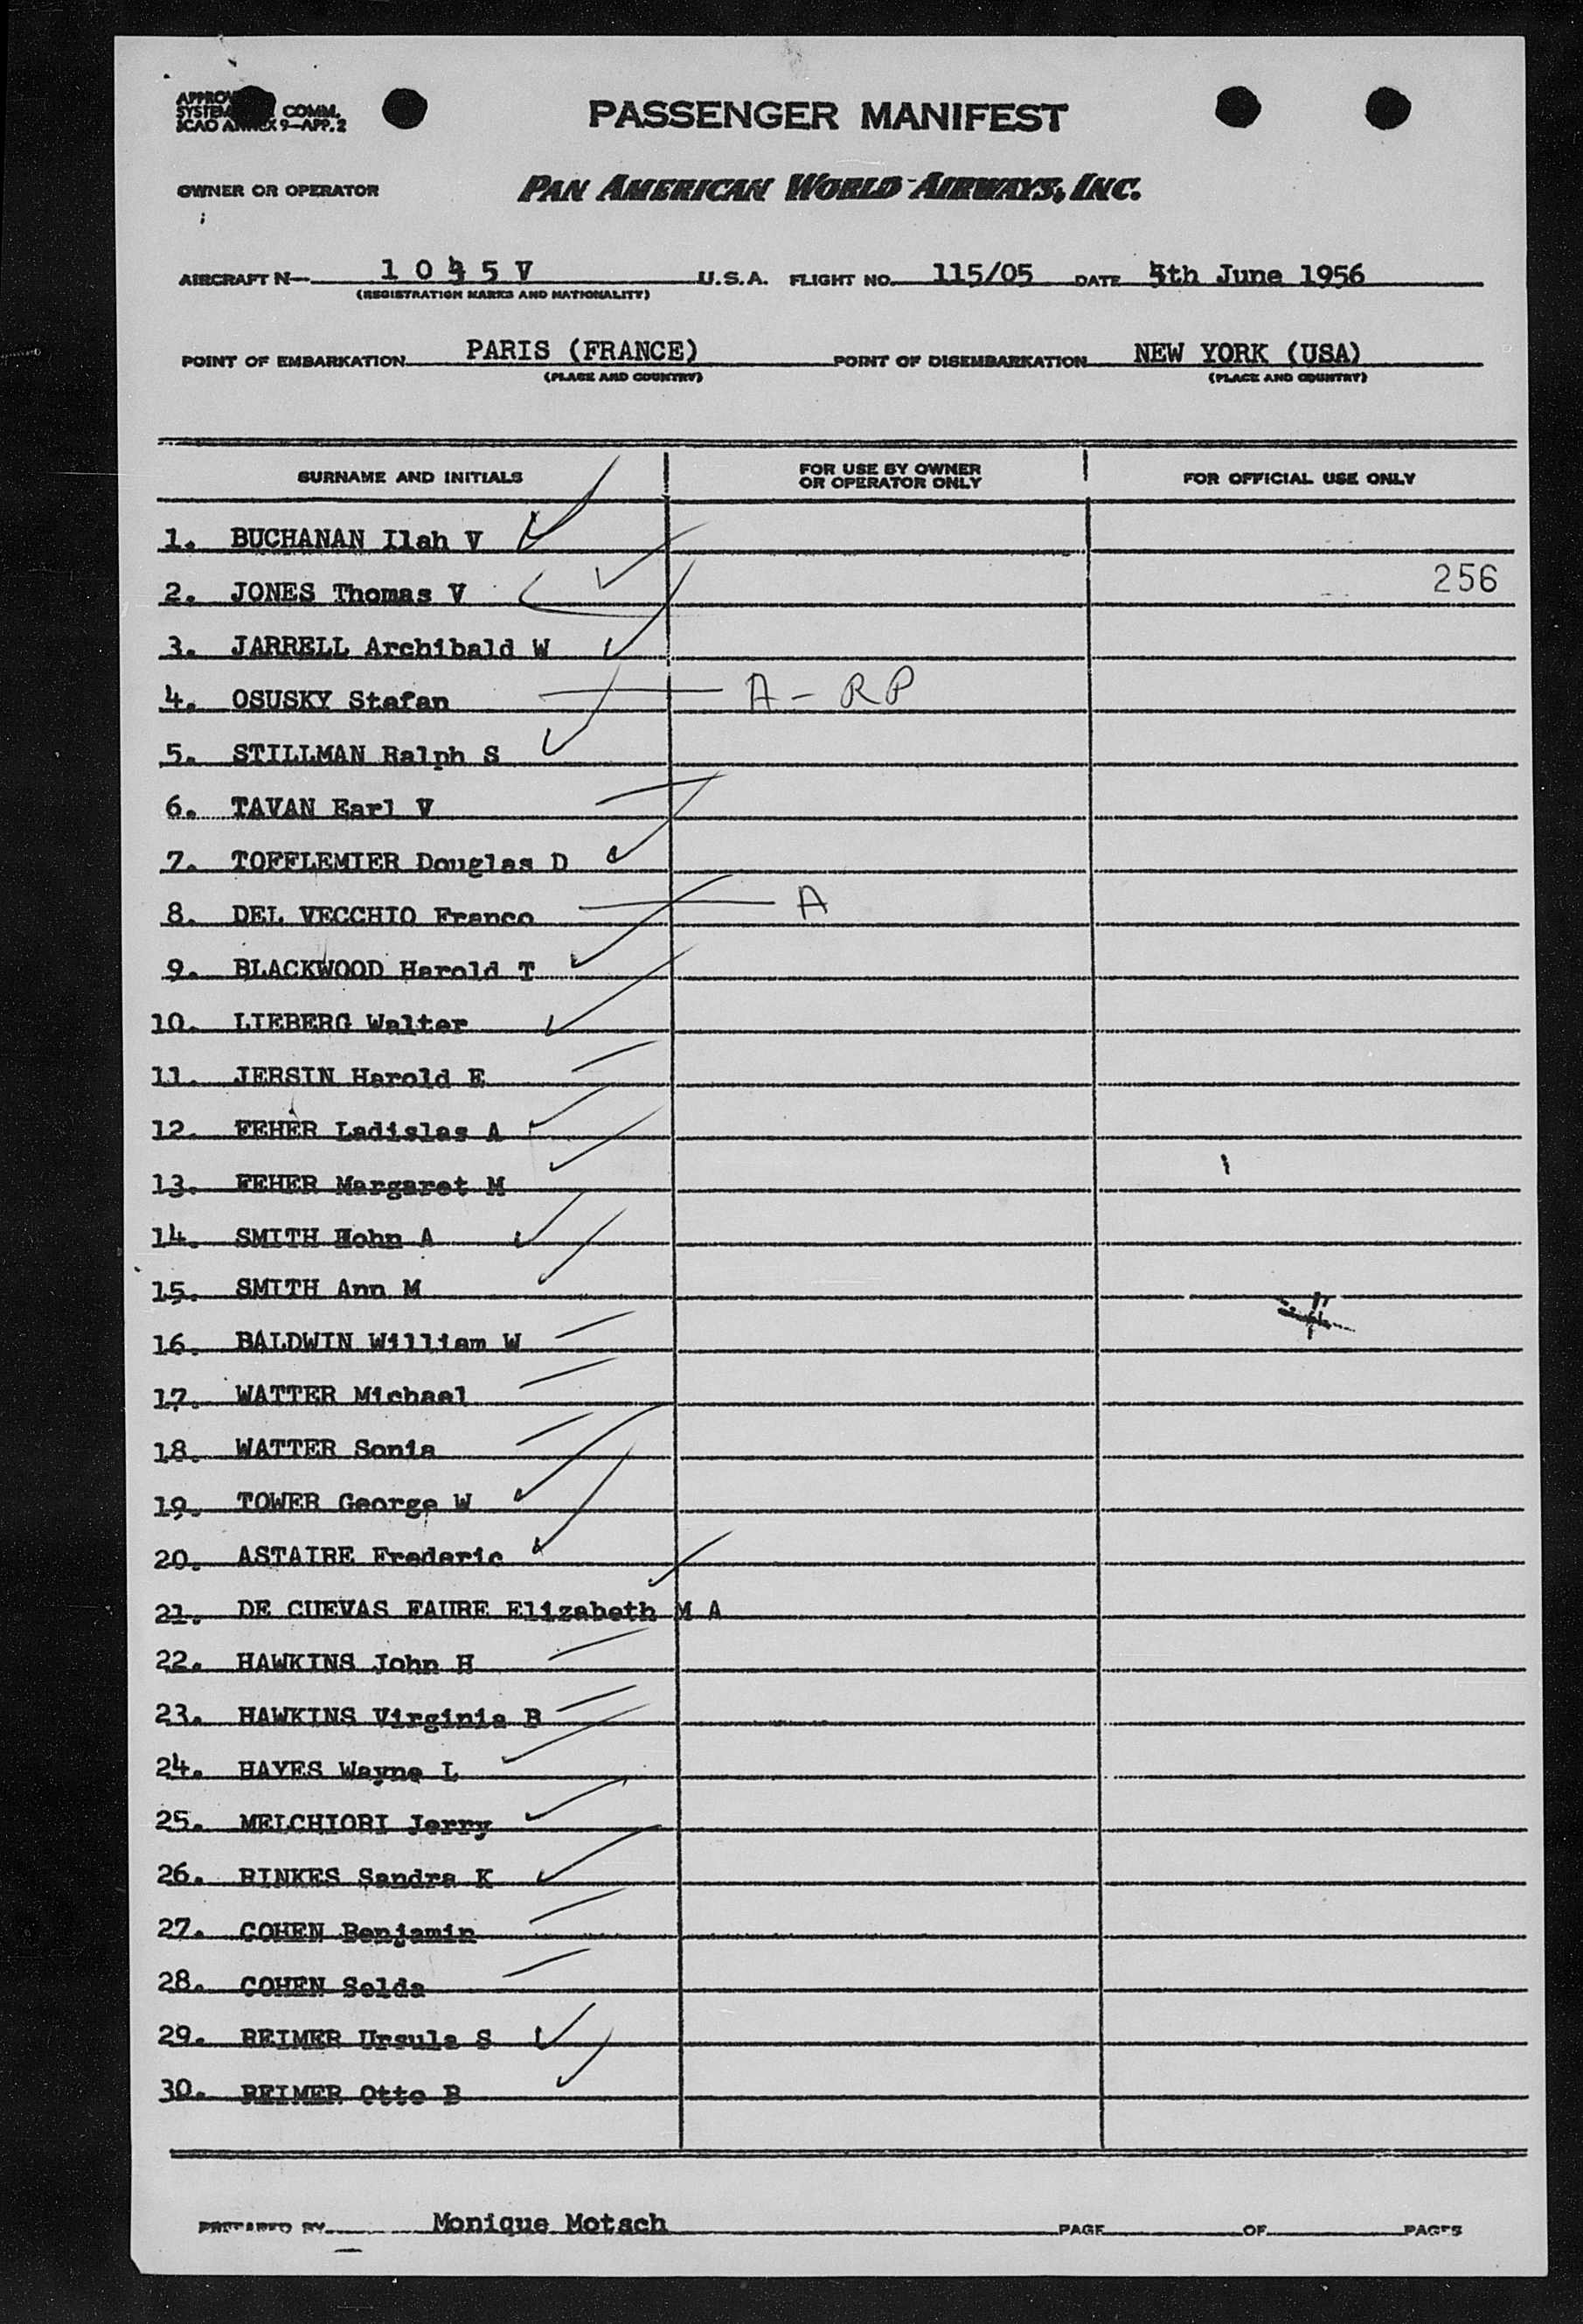 PASSENGER MANIFEST
COMM.
9-APP. 2
OWNER OR OPERATOR PAN AMERICAN WORLD AIRWAYS, INC.
AIRCRAFT N- U.S.A. FLIGHT NO. 115/05 DATE 5th June 1956
(REGISTRATION MARKS AND NATIONALITY)
POINT OF EMBARKATION PARIS (FRANCE) POINT OF DISEMBARKATION NEW YORK (USA)
(PLACE AND COUNTRY) (PLACE AND COUNTRY)
SURNAME AND INITIALS FOR USE BY OWNER OR OPERATOR ONLY FOR OFFICIAL USE ONLY
1. BUCHANAN Ilah V
256
2. JONES Thomas V
3. JARRELL Archibald W
4. OSUSKY Stefan A - RP
5. STILLMAN Ralph S
6. TAVAN Earl V
7. TOFFLEMIER Douglas D
8. DEL VECCHIO Franco A
9. BLACKWOOD Harold T
10. LIEBERG Walter
11. JERSIN Harold E
12. FEHER Ladislas A
13. FEHER Margaret M
14. SMITH John A
15. SMITH Ann M
16. BALDWIN William W
17. WATTER Michael
18. WATTER Sonia
19. TOWER George W
20. ASTAIRE Frederic
21. DE CUEVAS FAURE Elizabeth M A
22. HAWKINS John H
23. HAWKINS Virginia B
24. HAYES Wayne L
25. MELCHIORI Jerry
26. RINKES Sandra K
27. COHEN Benjamin
28. COHEN Selda
29. REIMER Ursula S
30. REIMER Otto B
PREPARED BY Monique Motach PAGE OF PAGES